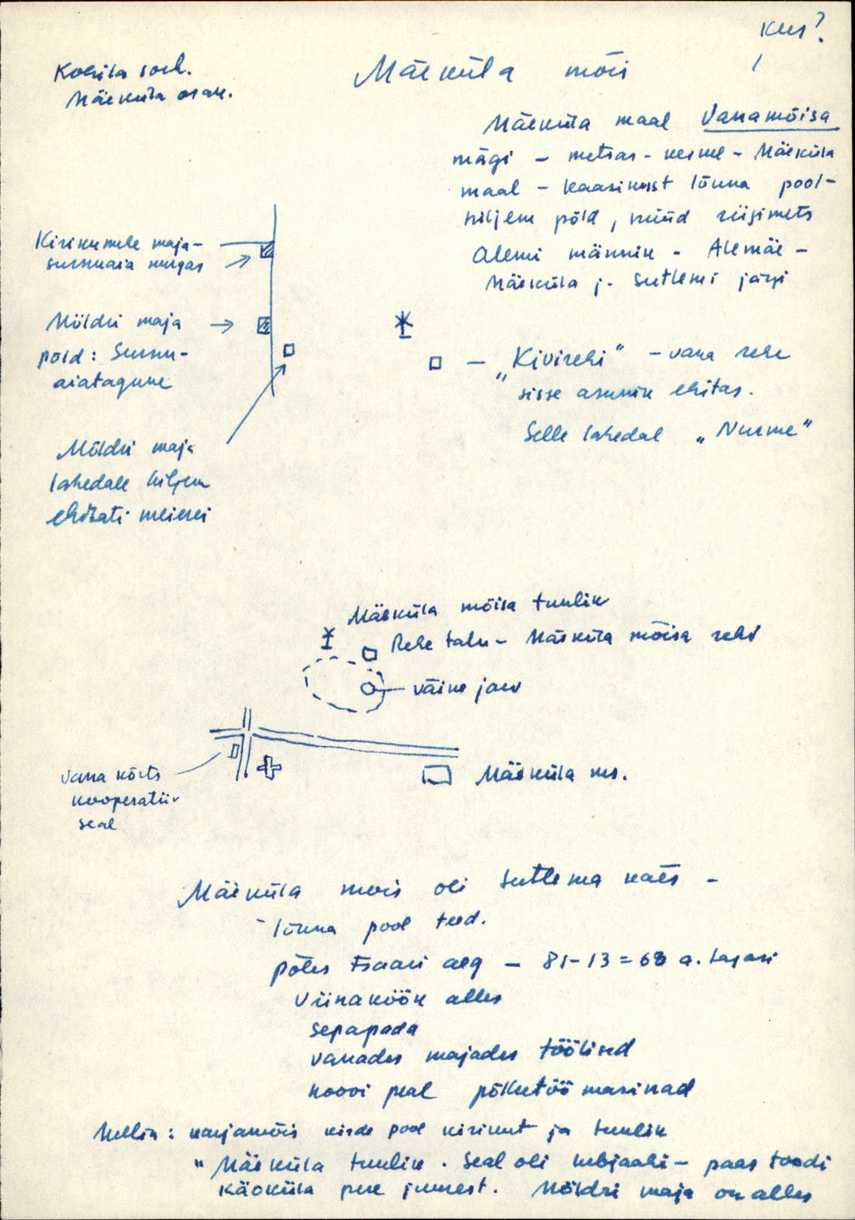 Kus?
Kohila sovh.
Mäeküla osak.
Mäeküla mõis
Mäeküla maal Vanamõisa
mägi – metsas – keskel – Mäeküla
maal – kaasikust lõuna pool –
hiljem põld, nüüd riigimets
Alemi männik – Alemäe –
Mäeküla j. Sutlemi järgi
Kirikumehe maja –
surnuaia nurgas
Möldri maja
põld: Surnu-
aiatagune
Möldri maja
lähedale hiljem
ehitati meierei
– „Kivirehi" – vana rehe
sisse asunik ehitas.
Selle lähedal „Nurme"
Mäeküla mõisa tuulik
Rehe talu – Mäeküla mõisa rehi
väike järv
Vana kõrts
kooperatiiv
seal
Mäeküla ms.
Mäeküla mõis oli Sutlema käes –
lõuna pool teed.
põles Tsaari aeg – 81–13 = 68 a. tagasi
Viinaköök alles
Sepapada
vanades majades töölised
hoovi peal põllutöö masinad
karjamõis kirde pool kirikut ja tuulik
" Mäeküla tuulik. Seal oli lubjaahi – paas toodi
Käoküla pere juurest. Möldri maja on alles